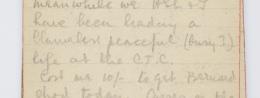 meanwhile we H&L & I
have been leading a
blameless peaceful (busy?)
life at the C.T.C.
Cost me 10/- to get Barnard
shod today. on the